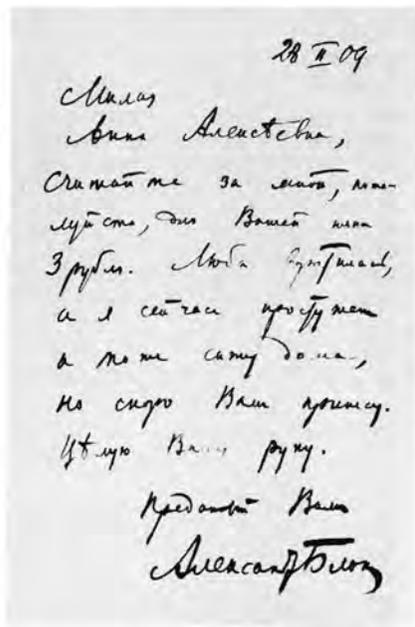 28 II 09
Милая
Анна Алексѣевна,
считайте за мной, пожа-
луйста, для Вашей
3 рубля. Люба
а я сейчас простужен
и тоже сижу дома,
но скоро Вам принесу.
Цѣлую Вашу руку.
Преданный Вам
Александр Блок